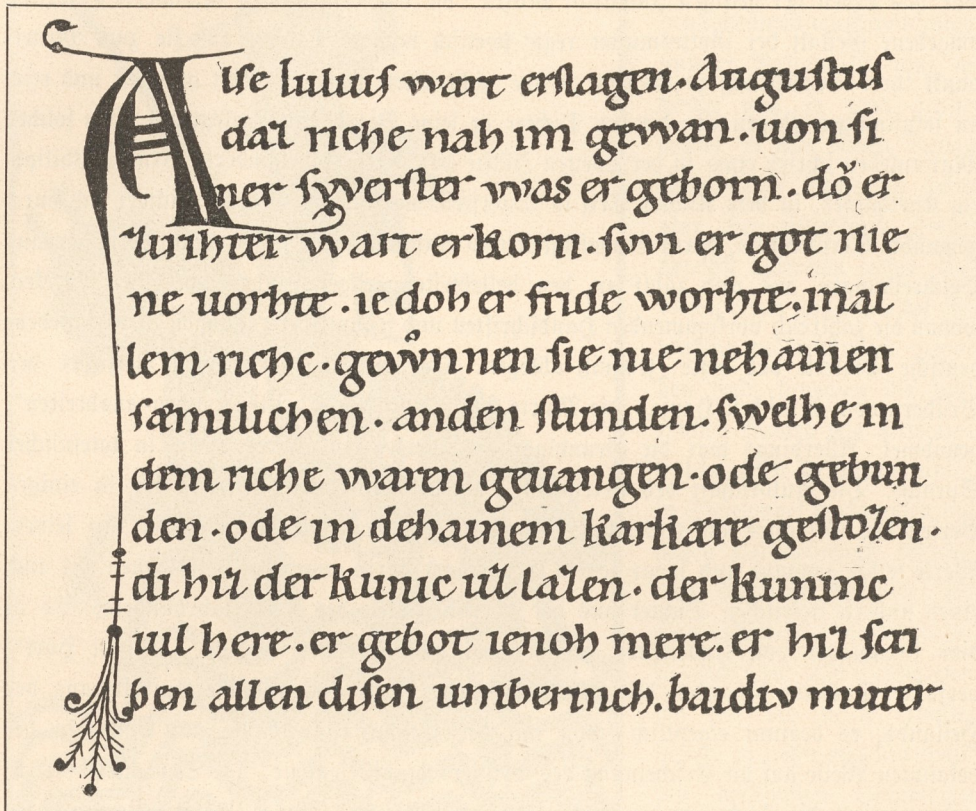 Alse Iuliuſ wart erſlagen. Auguſtuſ
daz riche nah im gewan. uon ſi
ner ſwerſter was er geborn. doͮ er
zurihter wart erkorn. ſwi er got nie
ne uorhte. ie doh er fride worhte. inal
lem riche. gewͦnnen ſie nie nehainen
ſæmilichen. anden ſtunden. ſwelhe in
dem riche waren geuangen. ode gebun
den. ode in dehainem karkære geſtozen.
di hiz der kunic uz lazen. der kuninc
uil here. er gebot ienoh mere. er hiz ſcri
ben allen diſen umberinch. baidiv muter